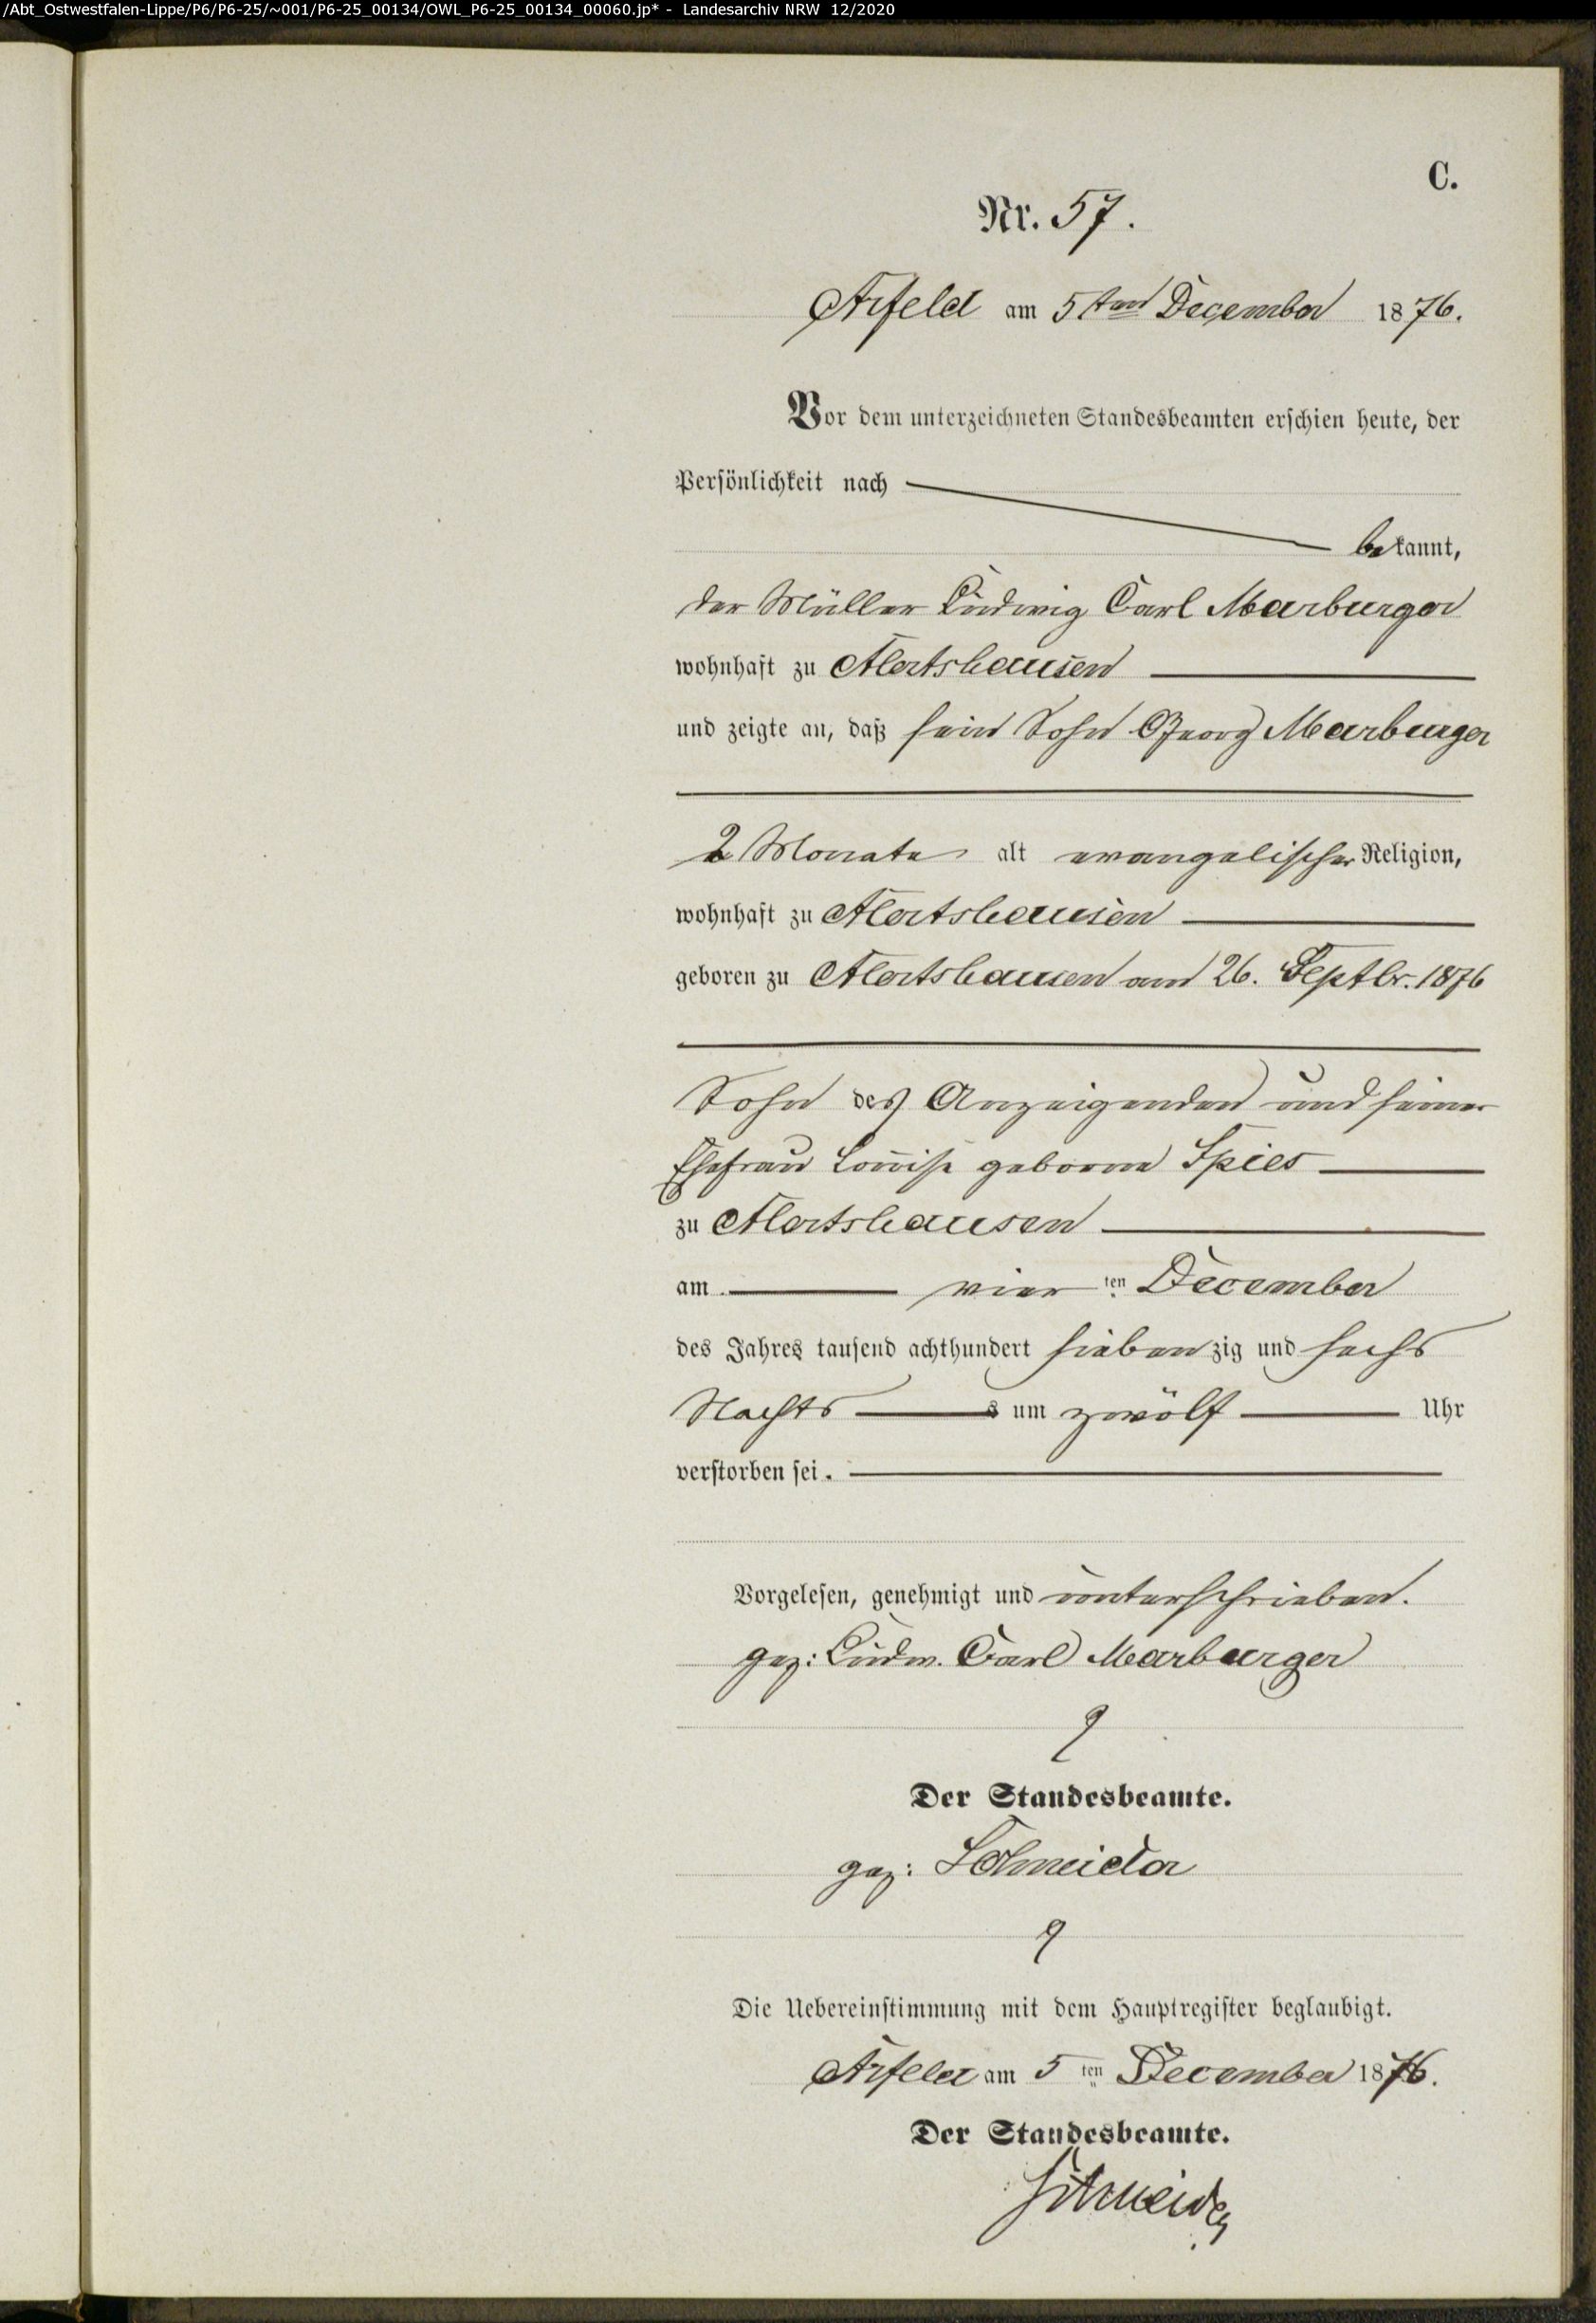 /Abt_Ostwestfalen-Lippe/P6/P6-25/~001/P6-25_00134/OWL_P6-25_00134_00060.jp* - Landesarchiv NRW 12/2020
C.
Nr. 57.
Arfeld am 5ten December 1876.
Vor dem unterzeichneten Standesbeamten erschien heute, der
Persönlichkeit nach
bekannt,
der Müller Ludwig Carl Marburger
wohnhaft zu Alertshausen
und zeigte an, daß sein Sohn Georg Marburger
2 Monate alt evangelischer Religion,
wohnhaft zu Alertshausen
geboren zu Alertshausen am 26. Septbr. 1876
Sohn des Anzeigenden und seiner
Ehefrau Louise geborne Spies
zu Alertshausen
am vier ten December
des Jahres tausend achthundert siebenzig und sechs
Nachts s um zwölf Uhr
verstorben sei.
Vorgelesen, genehmigt und unterschrieben.
gez: Ludw. Carl Marburger
Der Standesbeamte.
gez: Schneider
Die Uebereinstimmung mit dem Hauptregister beglaubigt.
Arfeld am 5 ten December 1876.
Der Standesbeamte.
Schneider